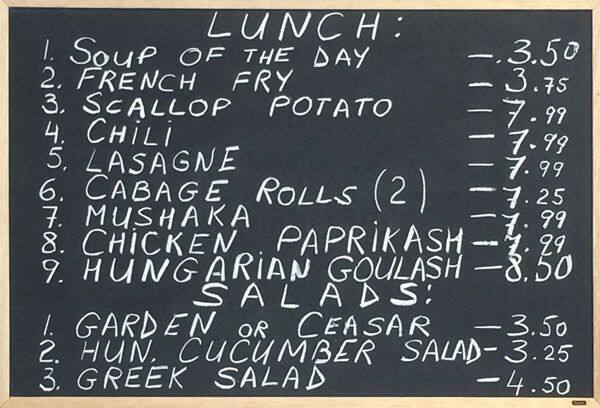 LUNCH:
1. SOUP OF THE DAY -.3.50
2. FRENCH FRY - 3.75
3. SCALLOP POTATO - 7.99
4. CHILI - 7.99
5. LASAGNE - 7.99
6. CABAGE ROLLS (2) - 7.25
7. MUSHAKA - 7.99
8. CHICKEN PAPRIKASH - 7.99
9. HUNGARIAN GOULASH - 8.50
SALADS:
1. GARDEN OR CEASAR - 3.50
2. HUN. CUCUMBER SALAD - 3.25
3. GREEK SALAD - 4.50